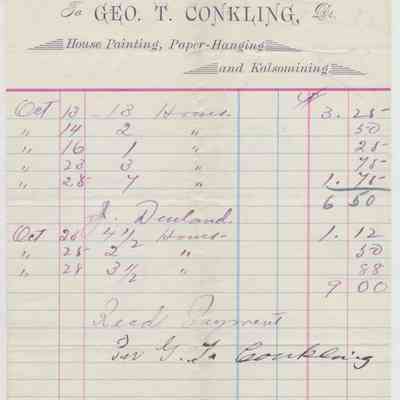 To GEO. T. CONKLING, Dr.
House Painting, Paper-Hanging
and Kalsomining
Oct 13 13 Hours 3.25
" 14 2 " 50
" 16 1 " 25
" 23 3 " 75
" 28 7 " 1.75
6 50
J. Denland.
Oct 26 4 1/2 Hours 1.12
" 25 2 " 50
" 28 3 1/2 " 88
9 00
Recd Payment
Per G. T. Conkling